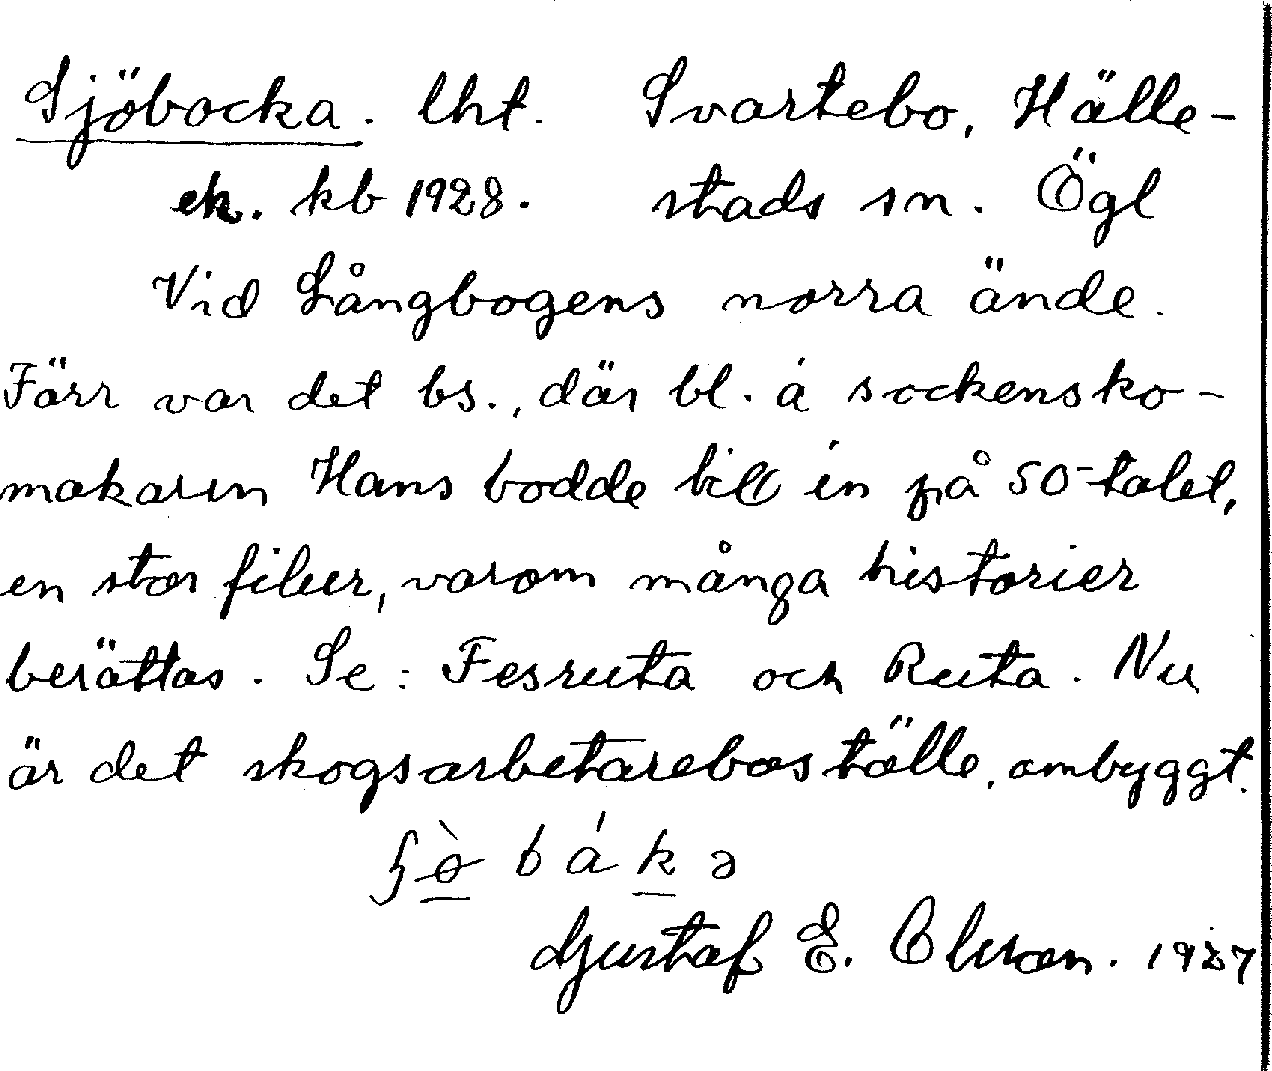 Sjöbacka. lht. Svartebo, Hälle-
ek. kb 1928. stads sn. Ögl
Vid Långbogens norra ände.
Förr var det bs., där bl. a sockensko-
makaren Hans bodde till in på 50-talet,
en stor filur, varom många historier
berättas. Se: Fesruta och Ruta. Nu
är det skogsarbetareboställe, ombyggt.
Gustaf E. Olsson. 1927